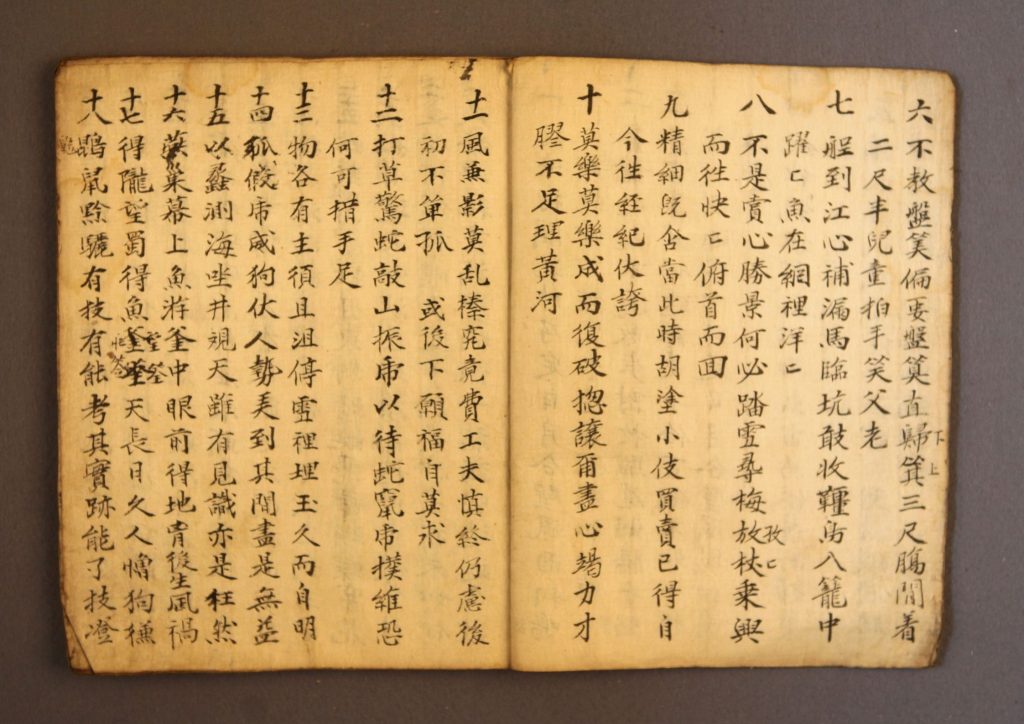 六不教盤筭偏要盤筭直歸箕三尺腸閒着
二尺半兒童拍手笑父老
七 船到江心補漏馬臨坑鼓收韁鳥入籠中
躍〻魚在網裡洋〻
八 不是賞心勝景何必踏雪尋梅放杖乘興
而徃快〻俯首而回
九精細既舍當此時胡塗小伎買賣已得自
今徃経紀伏誇
十 莫樂莫樂成而復破揔讓爾盡心竭力才
膠不足理黃河
十一風兼影莫乱捧究竟費工夫慎終仍慮後
初不箪孤 或設下願福自莫求
十二打草驚蛇敲山振虎以待蛇竄虎撲維恐
何可措手足
十三物各有主須且沮停雪裡埋玉久而自明
十四狐假虎威狗伏人勢美到其間盡是無益
十五以蠡測海坐井觀天雖有見識亦是枉然
十六燕巢幕上魚游釜中眼前得地背後生風禍
十七得隴望蜀得魚望筌天長日久人憎狗嫌
十八鼯鼠黔驢有技有能考其實跡能了技澄